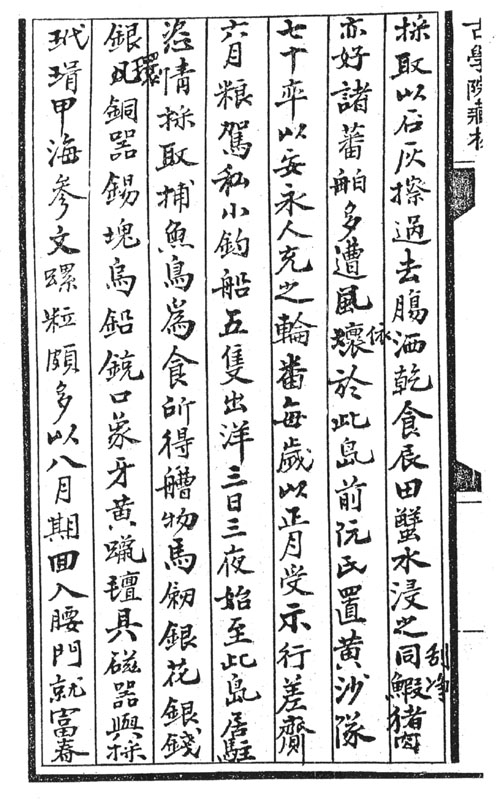 古學院藏
採取以石灰擦過去膓洒乾食辰田蟹水浸之刮净同鰕猪肉
亦好諸蕃舶多遭風壞依於此島前阮氏置黄沙隊
七十率以安永人充之輪番每歲以正月受示行差齎
六月粮駕私小釣船五隻出洋三日三夜始至此島居駐
恣情採取捕魚鳥爲食所得艚物馬劒銀花銀錢
銀環銅器錫塊烏鉛銃口象牙黄蝋氊具磁器與採
玳瑁甲海參文螺粒頗多以八月期回入腰門就富春